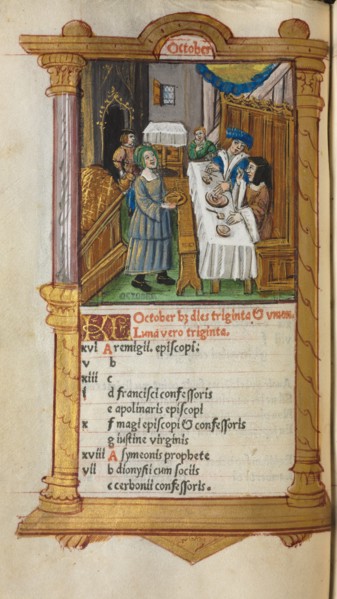 October
OCTOBER
KL October hz dies triginta & vnum.
Luna vero triginta.
xvi A remigii. episcopi.
v b
xiii c
i d francisci confessoris
e apolinaris episcopi
x f magi episcopi & confessoris
g iustine virginis
xviii A symeonis prophete
vii b dionysii cum sociis
c cerbonii confessoris.